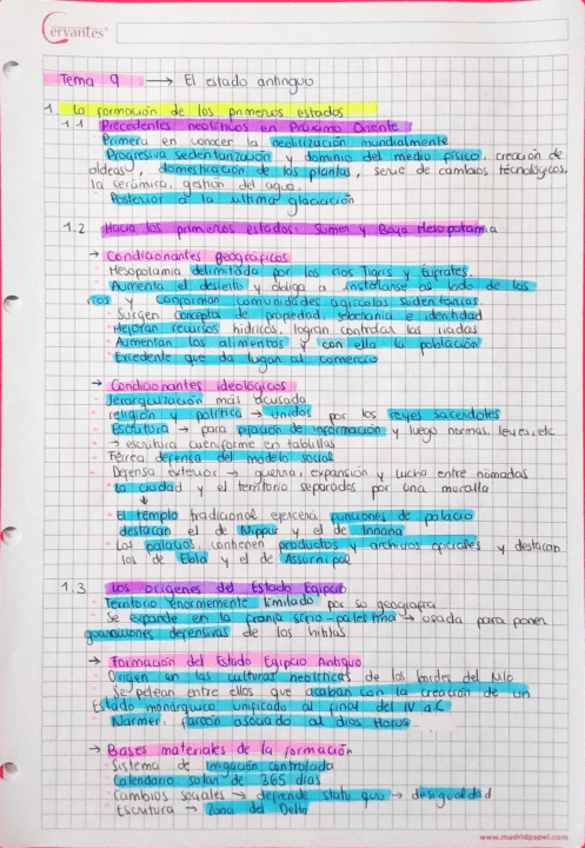 Cervantes
Tema 9 → El estado antinguo
1. La formación de los primeros estados
1.1 Precedentes neolíticos en Próximo Oriente
Primera en conocer la neolitización mundialmente
Progresiva sedentarización y dominio del medio físico, creación de
aldeas, domesticación de las plantas, serie de cambios técnológicos,
la cerámica, gestión del agua.
Posterior a la última glaciación
1.2 Hacia los primeros estados: Sumer y Baja Mesopotamia
→ Condicionantes geográficos
Mesopotamia delimitada por los ríos Tigris y Eúfrates.
Aumenta el desierto y obliga a instalarse al lado de los
ríos y conforman comunidades agrícolas sedentarias.
Surgen conceptos de propiedad, soberanía e identidad
Mejoran recursos hídricos, logran controlar las riadas
Aumentan los alimentos y con ella la población
Excedente que da lugar al comercio
→ Condicionantes ideológicos
Jerarquización más acusada
religión y política → unidos por los reyes sacerdotes
Escritura → para fijación de información y luego normas, leyes, etc
→ escritura cuneiforme en tablillas
Férrea defensa del modelo social
Defensa exterior → guerra, expansión y lucha entre nómadas
La ciudad y el territorio separados por una muralla
↓
El templo tradicional ejercerá funciones de palacio
destacan el de Nippur y el de Inanna
Los palacios, contienen productos y archivos oficiales y destacan
los de Ebla y el de Assurnipal
1.3 Los orígenes del Estado Egipcio
Territorio enormemente limitado por su geografía
Se expande en la franja sirio-palestina → usada para poner
guarniciones defensivas de los hititas
→ Formación del Estado Egipcio Antiguo
Origen en las culturas neolíticas de los bordes del Nilo
Se pelean entre ellos que acaban con la creación de un
Estado monárquico unificado al final del IV a.C
Narmer, faraón asociado al dios Horus
→ Bases materiales de la formación
Sistema de irrigación controlada
Calendario solar de 365 días
Cambios sociales → defiende statu quo → desigualdad
Escritura → zona del Delta
www.madridpapel.com